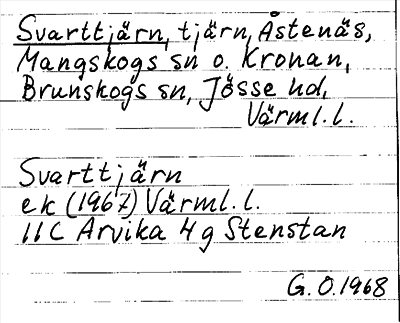 Svarttjärn, tjärn, Åstenäs,
Mangskogs sn o. Kronan,
Brunskogs sn, Jösse hd,
Värml. l.
Svarttjärn
ek (1967) Värml. l.
11C Arvika 4g Stenstan
G. O. 1968